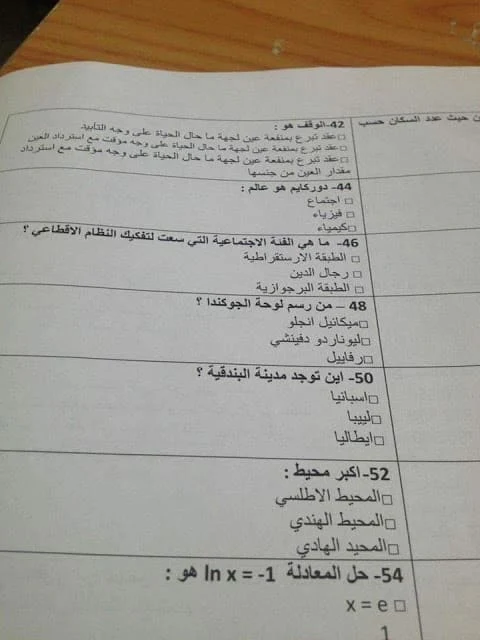 ن حيث عدد السكان حسب
42-الوقف هو :
□عقد تبرع بمنفعة عين لجهة ما حال الحياة على وجه التأبيد
□عقد تبرع بمنفعة عين لجهة ما حال الحياة على وجه مؤقت مع استرداد العين
□عقد تبرع بمنفعة عين لجهة ما حال الحياة على وجه مؤقت مع استرداد
مقدار العين من جنسها
44- دوركايم هو عالم :
□ اجتماع
□ فيزياء
□كيمياء
46- ما هي الفئة الاجتماعية التي سعت لتفكيك النظام الاقطاعي ؟
□ الطبقة الارستقراطية
□ رجال الدين
□ الطبقة البرجوازية
48 – من رسم لوحة الجوكندا ؟
□ميكائيل انجلو
□ليوناردو دفينشي
□رفاييل
50- اين توجد مدينة البندقية ؟
□اسبانيا
□ليبيا
□ايطاليا
52-اكبر محيط :
□المحيط الاطلسي
□المحيط الهندي
□المحيد الهادي
54- حل المعادلة ln x = -1 هو :
□ x = e
1